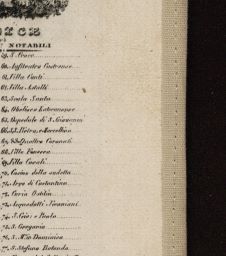 DICE
NOTABILI
59. S. Croce
60. Anfiteatro Castrense
61. Villa Conti
62. Villa Astalli
63. Scala Santa
64. Obelisco Lateranense
65. Ospedale di S. Giovanni
66. SS. Pietro, e Marcellino
67. SS. Quattro Coronati
68. Villa Fonseca
69. Villa Casali
70. Casino della sudetta
71. Arco di Costantino
72. Curia Ostilia
73. Acquedotti Neroniani
74. S. Gio: e Paolo
75. S. Gregorio
76. S. Mia Domnica
77. S. Stefano Rotondo